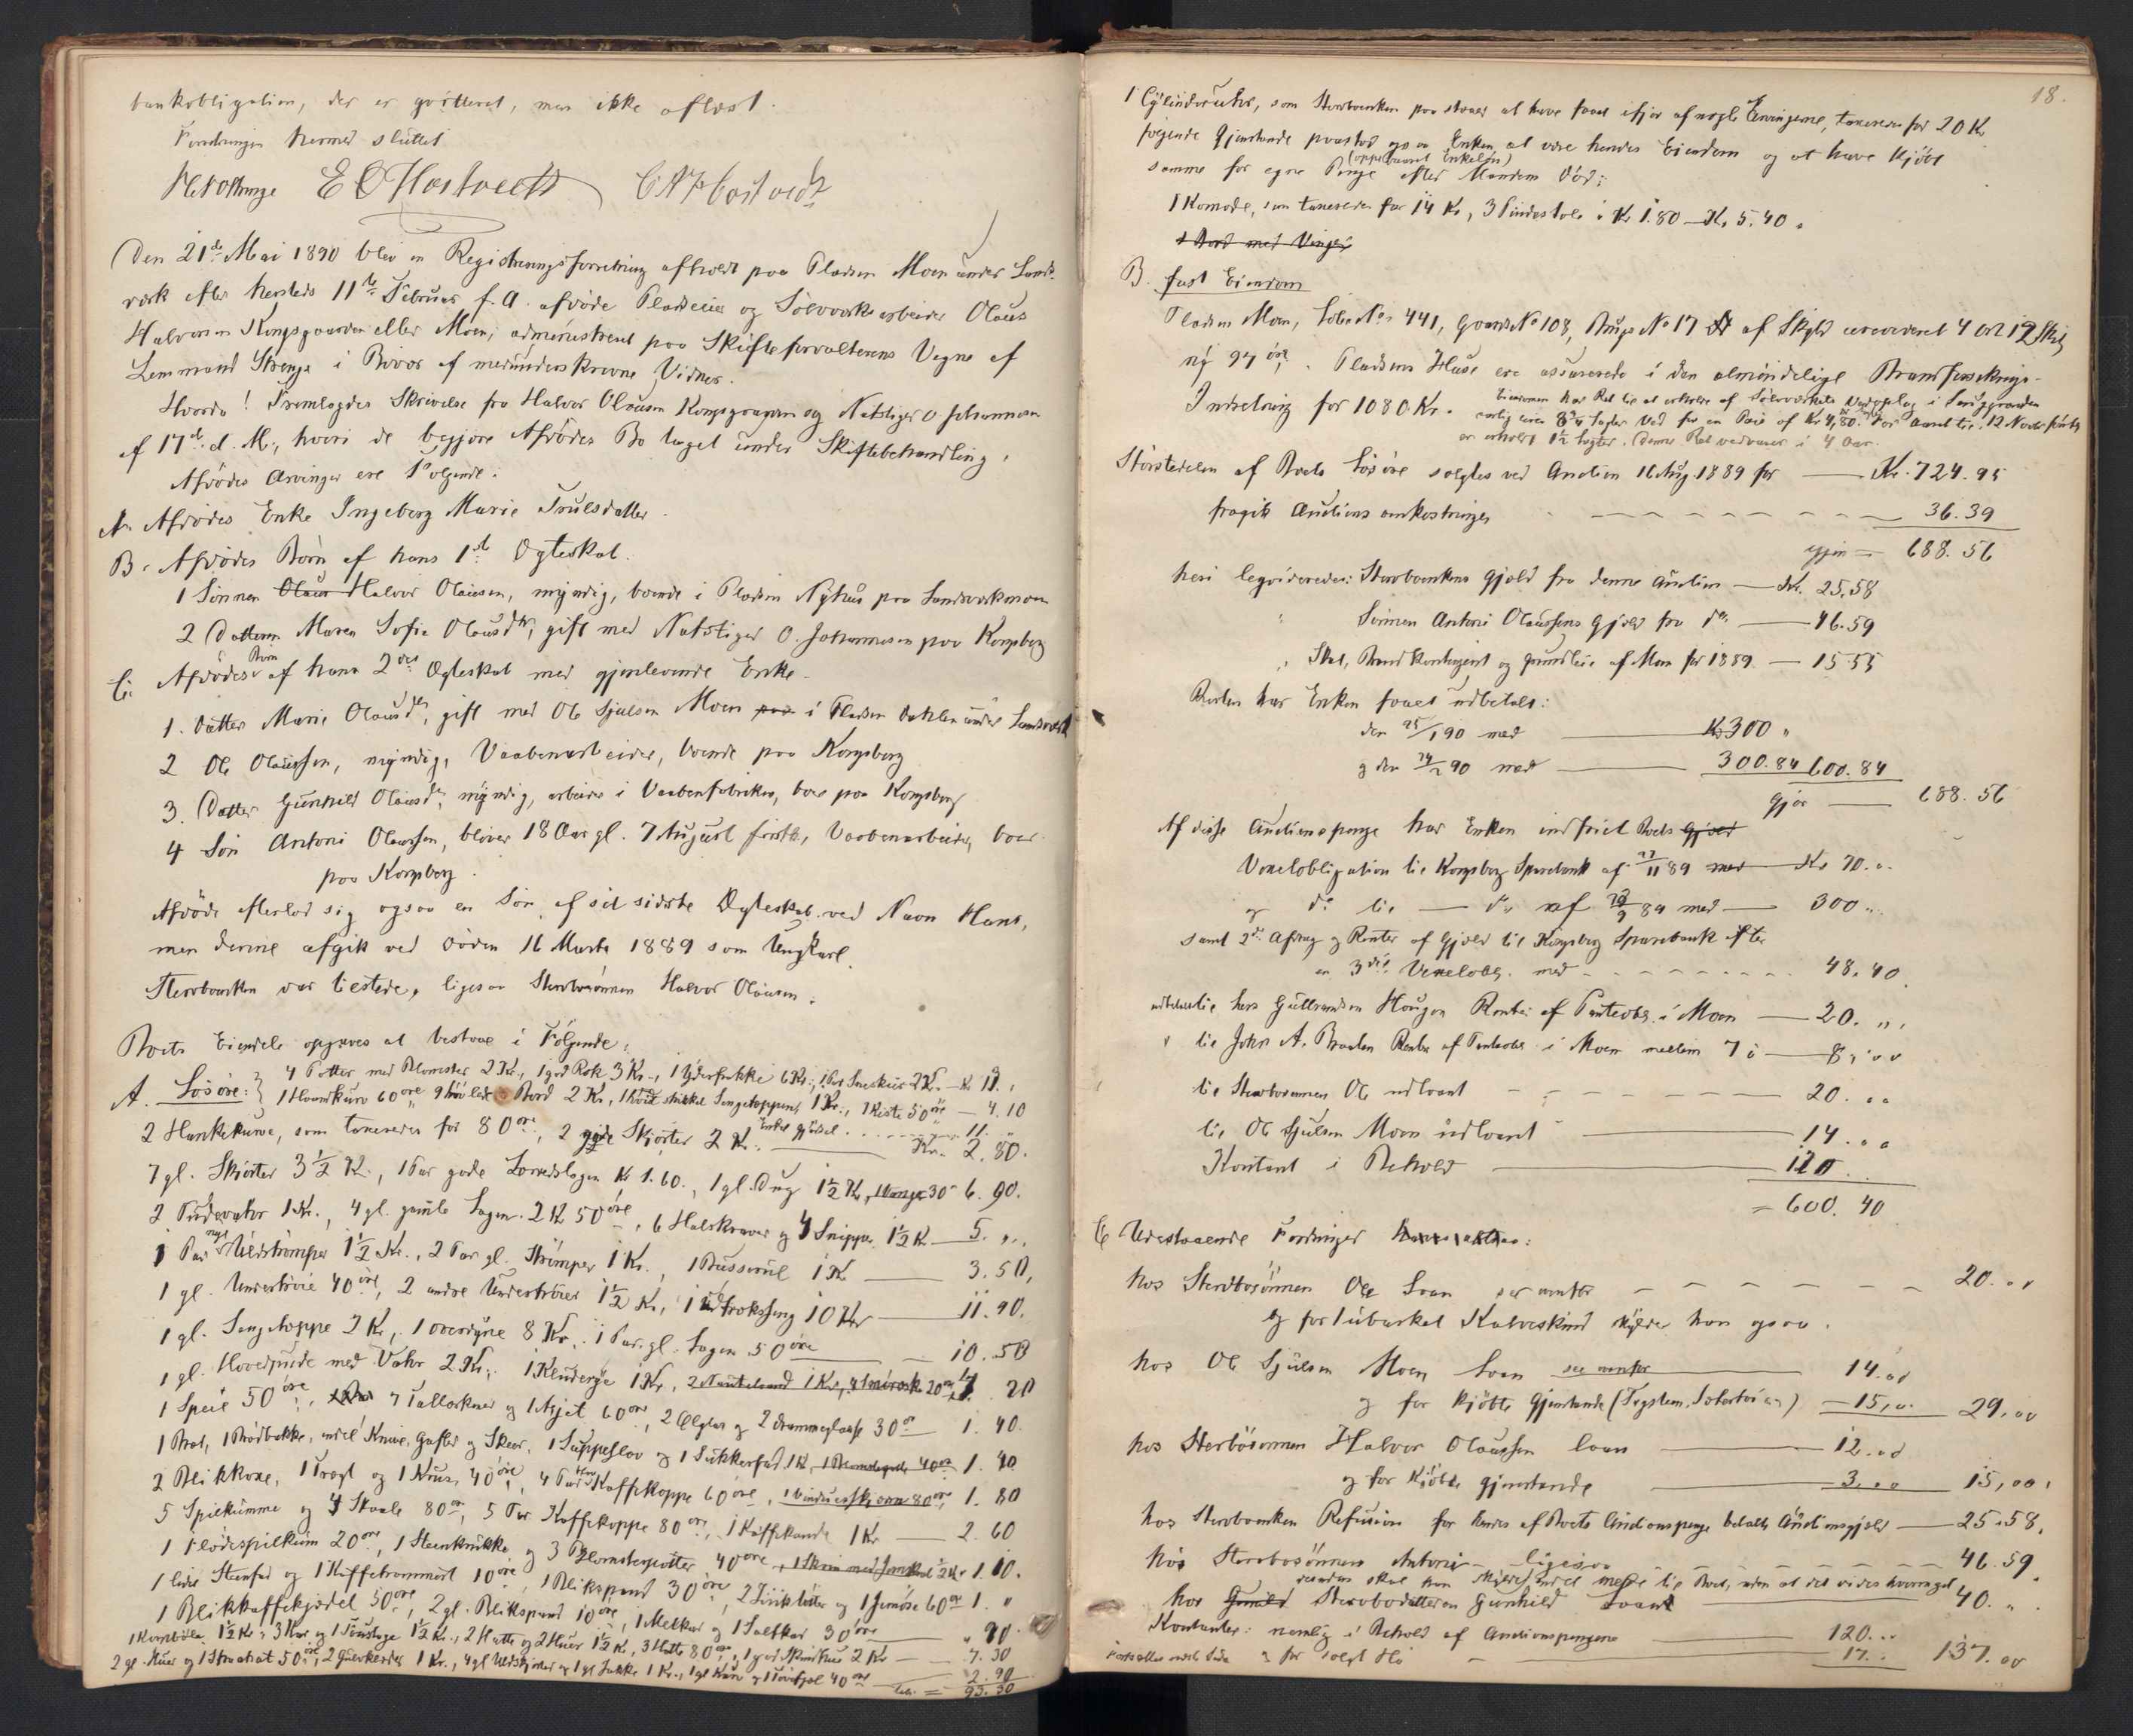 bankobligation, der er qvitteret, men ikke aflæst.
Forretningen hermed sluttet
Den 21de Mai 1890 blev en Registreringsforretning afholdt paa Pladsen Moen under Sands-
værk efter hersteds 11te Februar f. A. afdøde Pladseier og Sølvværksarbeider Olaus
Halvorsen Kongsgaarden eller Moen, administreret paa Skifteforvalterens Vegne af
Lensmand Strenge i Bivær af medunderskrevne Vidner.
Hvorda! Fremlagdes Skrivelse fra Halvor Olausen Kongsgaarden og Natstiger O. Johannesen
af 17de d. M., hvori de begjære Afdødes Bo taget under Skiftebehandling.
Afdødes Arvinger ere Følgende:
A. Afdødes Enke Ingeborg Marie Trulsdatter.
B. Afdødes Børn af hans 1ste Ægteskab.
1 Sønnen Olaus Halvor Olausen, myndig, boende i Pladsen Nyhus paa Sandsværkmoen
2 Datteren Maren Sofie Olausdtr, gift med Natstiger O. Johannesen paa Kongsberg
C. Afdødes Børn af hans 2det Ægteskab med gjenlevende Enke.
1. Datter Marie Olausdtr, gift med Ole Sjulsen Moen paa i Pladsen Dahlen under Sandsværk
2 Ole Olaussen, myndig, Vaabenarbeider, boende paa Kongsberg
3. Datter Gunhild Olausdtr, myndig, arbeider i Vaabenfabriken, boer paa Kongsberg
4 Søn Antoni Olaussen, bliver 18 Aar gl. 7 August førstk., Vaabenarbeider, boer
paa Kongsberg.
Afdøde efterlod sig ogsaa en Søn af sit sidste Ægteskab ved Navn Hans,
men denne afgik ved Døden 16 Marts 1889 som Ungkarl.
Stervboenken var tilstede, ligesaa Stervbosønnen Halvor Olausen.
Boets Eiendele opgives at bestaae i Følgende:
A. Løsøre: 4 Potter med Blomster 2 Kr., 1 god Rok 3 Kr., 1 Yderfrakke 6 Kr., 1 Par Sneskier 2 Kr. — Kr 13.
1 Haandkurv 60 øre, 1 Bord 2 Kr., 1 Sengeteppe 1 Kr., 1 Kiste 50 øre — 4.10
2 Hankekurve, som taxeredes for 80 øre, 2 gode Skjorter 2 Kr. — Kr. 2.80.
7 gl. Skjorter 3 1/2 Kr., 1 Par gode Lærredslagen Kr 1.60., 1 gl. Dug 1 1/2 Kr, 30 6.90.
2 Pudevahr 1 Kr., 4 gl. gamle Lagen 2 Kr 50 øre, 6 Halskraver og 4 Snipper 1 1/2 Kr — 5. „
1 Par nye Uldstrømper 1 1/2 Kr., 2 Par gl. Strømper 1 Kr., 1 Busserul 1 Kr — 3.50,
1 gl. Undertrøie 40 øre, 2 andre Undertrøier 1 1/2 Kr, 1 Udtræksseng 10 Kr — 11.90.
1 gl. Sengeteppe 2 Kr, 1 overdyne 8 Kr., 1 Par gl. Lagen 50 øre — 10.50
1 gl. Hovedpude med Vahr 2 Kr., 1 Klæderje 1 Kr,
1 Speil 50 øre, 7 Tallerkner og 1 Asjet 60 øre, 2 Ølglas og 2 Drammeglasse 30 øre — 1.40.
1 Brødbakke, endel Knive, Gafler og Skeer, 1 Suppeslev og 1 Sukkerfad 1 Kr, 1. 40
2 Blikkoxe, 1 Tragt og 1 Krus 40 øre, 4 Par Kaffekoppe 60 øre, 1 Vinduesskjærm 80 øre 1. 80
5 Spilkumme og 4 Skaale 80 øre, 5 Par Kaffekoppe 80 øre, 1 Kaffekande 1 Kr — 2.60
1 Flødespilkum 20 øre, 1 Steenkrukke og 3 Blomsterpotter 40 øre, 1.10.
1 lidet Stenfad og 1 Kaffetrommel 10 øre, 1 Blikspand 30 øre, 2 Zinkbøtter og 60 øre 1. „
1 Blikkaffekjedel 50 øre, 2 gl. Blikspand 10 øre, 1 Melkar og 1 Saltkar 30 øre — „ 90.
1 1/2 Kr., 3 Kar og 1 1/2 Kr., 2 Hatte og 2 Huer 1 1/2 Kr, 3 Hatte 80 øre, 1 god Skindhue 2 Kr — 7.30
2 gl. Huer og 1 Straahat 50 øre, 2 1 Kr., 4 gl Uldskjorter og 1 gl Jakke 1 Kr., 1 gl Kurv og 1 40 øre — 2.90
95.30
18.
1 Cylinderuhr, som Stervboenken paastaaer at have faaet ifjor af nogle Arvingerne, taxeredes for 20 Kr
følgende Gjenstande paastod ogsaa Enken at være hendes Eiendom og at have kjøbt
samme for egne Penge (oppebaaret Enkeløn) efter Mandens Død:
1 Komode, som taxeredes for 14 Kr, 3 Pindestole à Kr 1.80 — Kr. 5.40.
1 Bord med Vinger
B. fast Eiendom
Pladsen Moen, Løbe No 441, Gaards No 108, Brugs No 17 af Skyld urevideret 4 ort 12 Skil,
ny 94 øre. Pladsens Huse ere assurerede i den almindelige Brandforsikrings-
Indretning for 1080 Kr. Eiendommen har Ret til at erholde af Sølvværkets Vedoplag i Saggrenden
aarlig circa 8 3/4 Favner Ved for en Priis af Kr 4,80. For Aaret til 12 Novbr førstk.
er erholdt 1 1/2 Favner. Denne Ret vedvarer i 4 Aar.
Størstedelen af Boets Løsøre solgtes ved Auction 16 Aug. 1889 for — Kr. 724.95
fragik Auctions omkostninger — 36.39
igjen = 688.56
heri leqvideredes: Stervboenkens Gjæld fra denne Auction — Kr. 25,58
„ Sønnen Antoni Olaussens Gjæld fra do. — 46.59
„ Skat, Brandkontingent og Grundleie af Moen for 1889. — 15 55
Resten har Enken faaet udbetalt:
den 25/1 90 med — Kr 300 „
og den 24/2 90 med — 300.84 600.84
Gjør — 688.56
Af disse Auctionspenge har Enken indfriet Boets Gjæld
Vexelobligation til Kongsberg Sparebank af 27/11 89 med — Kr 70. „
og do. til — do. af 84 med — 300 „
samt 2de Afdrag og Renter af Gjæld til Kongsberg Sparebank efter
en 3die Vexelobl. med — 48.40
udbetalt til Hans Gulbrandsen Haugen Renter af Panteobl. i Moen — 20. „
„ til John A. Braaten Rente af Panteobl. i Moen mellem 7 à — 8, „
til Stervbosønnen Ole udlaant — 20. „
til Ole Sjulsen Moen udlaant — 14. „
Kontant i Behold — 120.
= 600.40
C Udestaaende Fordringer
hos Stervbosønnen Ole Laan — 20. „
og for 1 ubarket Kalveskind skylder han ogsaa.
hos Ole Sjulsen Moen Laan — 14. „
og for kjøbte Gjenstande — 15, „ 29. „
hos Stervbosønnen Halvor Olaussen laan — 12. „
og for kjøbte gjenstande — 3. „ 15, „
hos Stervboenken Refusion for hendes af Boets Auctionspenge betalte Auctionsgjæld — 25.58,
hos Stervbosønnen Antoni — ligesaa — 46.59.
desuden skal han skylde endel mere til Boet, uden at det vides hvormeget
hos Gunild Stervbodatteren Gunhild Laant — 40. „
Kontanter: nemlig i Behold af Auctionspengene — 120. „
og for solgt Hø — 17. „ 137. „